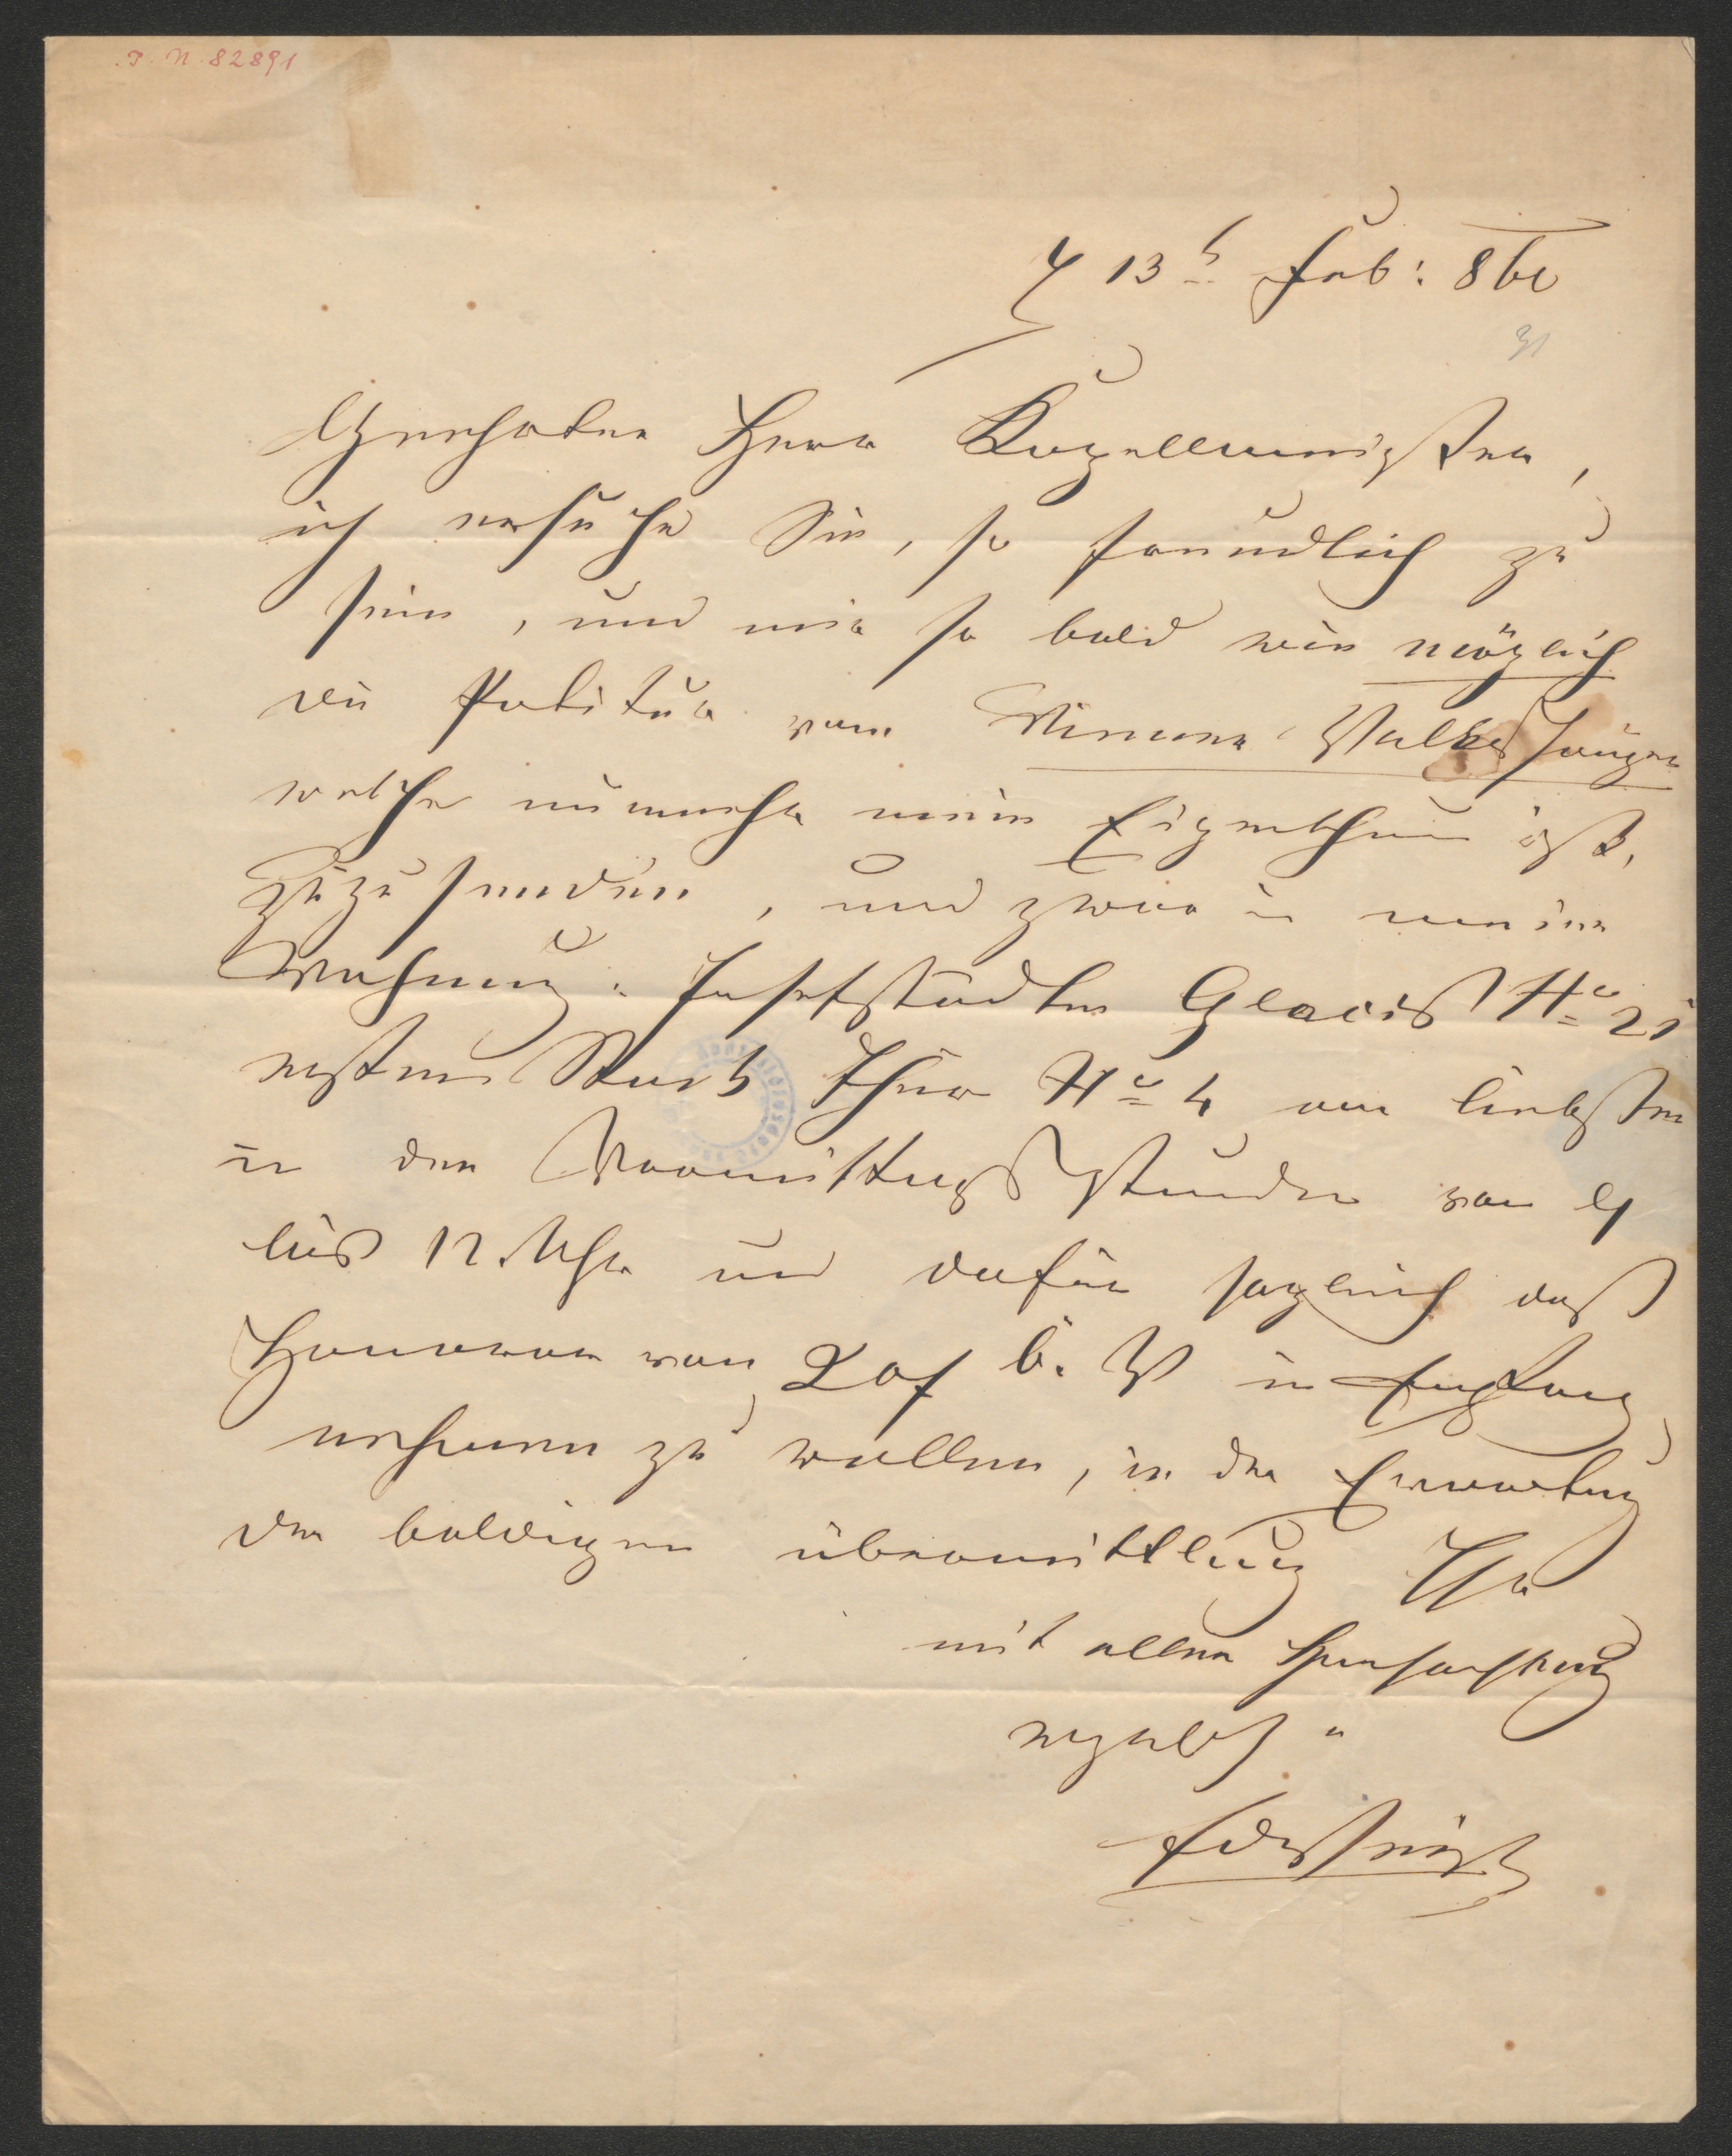 I. N. 82891
13t Feb: 860
31
Geehrter Herr Kapellmeister,
ich ersuche Sie, so freundlich zu
sein, und mir so bald wie möglich
die Partitur vom Wiener Volkssänger
welche nunmehr mein Eigenthum ist,
zuzusenden, und zwar in meine
Wohnung: Josefstädter Glacis No 21
ersten Stock Thür No 4 am liebsten
in den Vormittagsstunden von 9
bis 12 Uhr und dafür sogleich das
Honorar von 20 f ö. W in Empfang
nehmen zu wollen, in der Erwartung
der baldigen übermittlung Ihr
mit aller Hochachtung